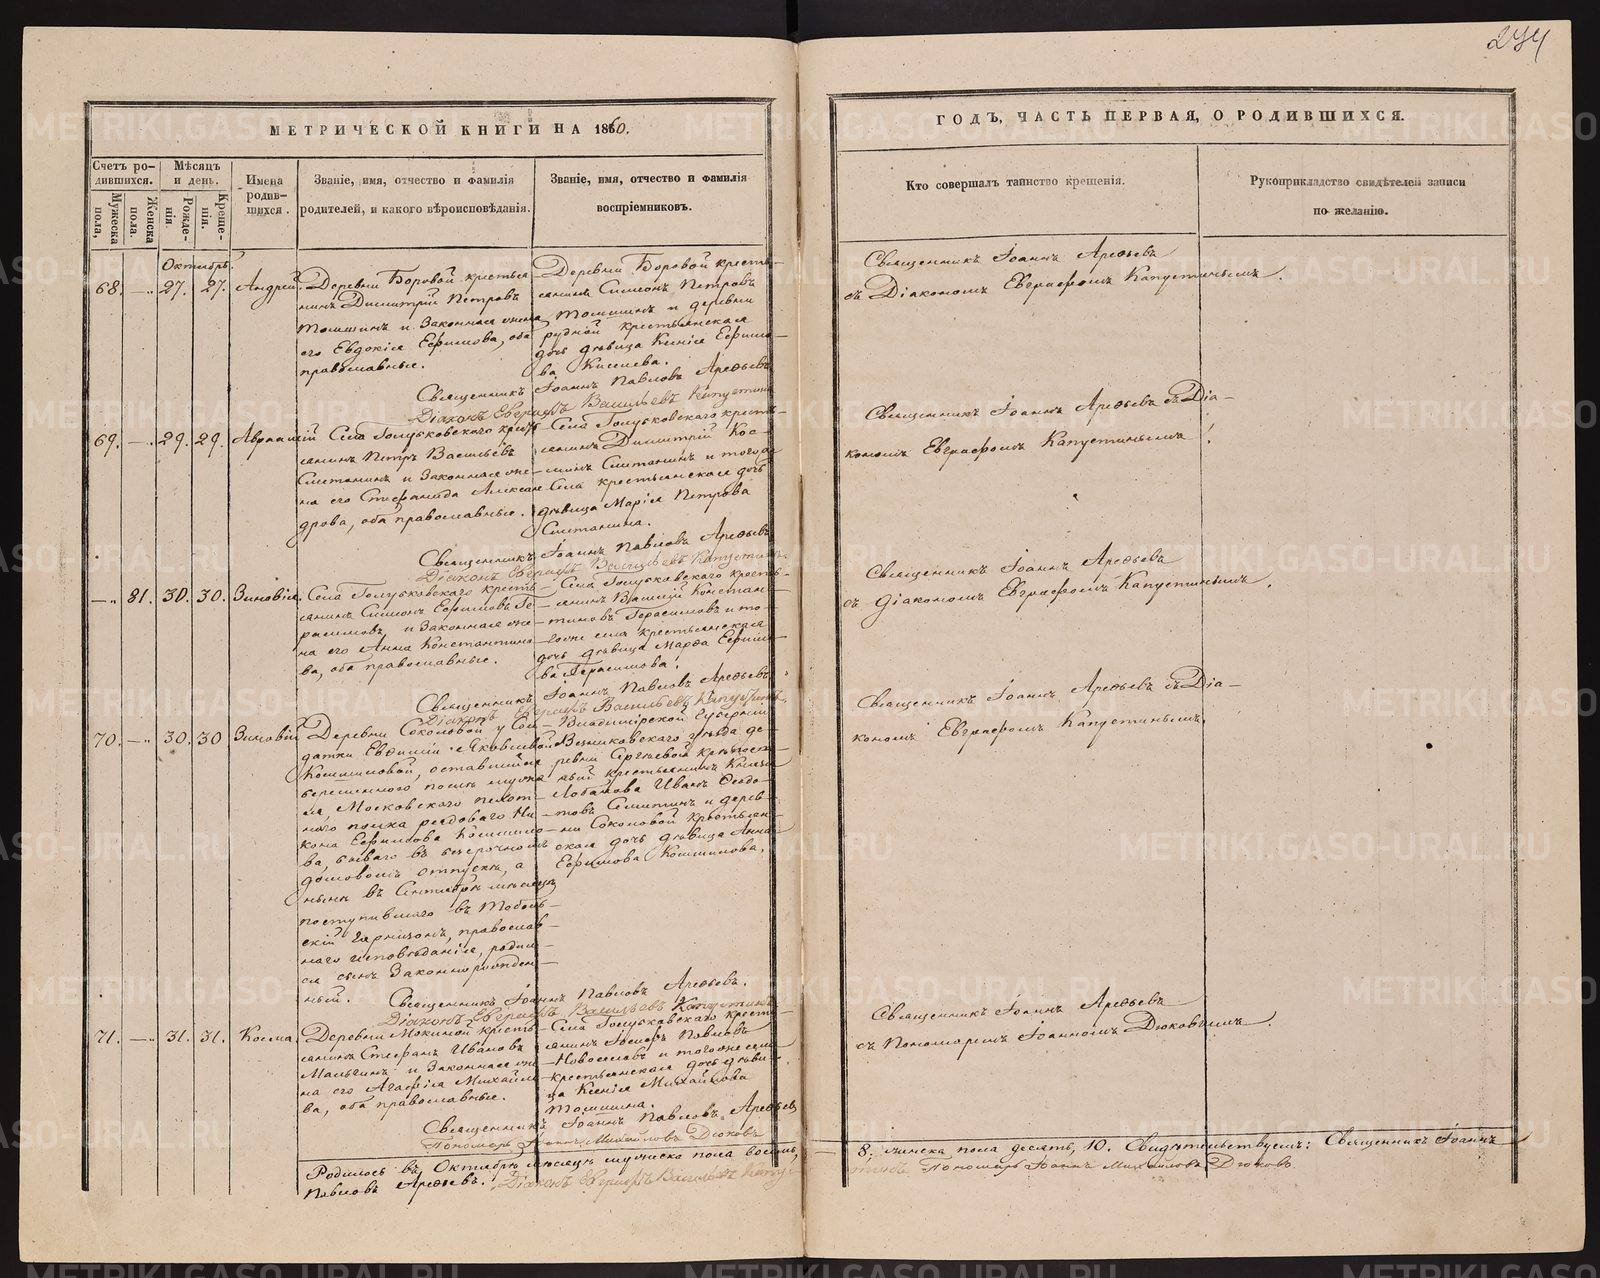 244
МЕТРИЧЕСКОЙ КНИГИ НА 1860.
ГОДЪ, ЧАСТЬ ПЕРВАЯ, О РОДИВШИХСЯ.
Счетъ родившихся.
Мужеска пола,
Женска пола.
Мѣсяцъ и день.
Рожденія.
Крещенія.
Имена родившихся.
Званіе, имя, отчество и фамилія
родителей, и какого вѣроисповѣданія.
Званіе, имя, отчество и фамилія
воспріемниковъ.
Кто совершалъ таинство крещенія.
Рукоприкладство свидѣтелей записи
по желанію.
Октябрь.
68. — 27. 27. Андрей.
Деревни Боровой крестья
нинъ Димитрій Петровъ
Томшинъ и Законная жена
его Евдокія Ефимова, оба
православные.
Деревни Боровой кресть-
янинъ Симеонъ Петровъ
Томшинъ и деревни
рудной крестьянская
дочь дѣвица Ксенія Ефимо-
ва Киселева.
Священникъ Іоаннъ Павловъ Арефьевъ
Діаконъ Евграфъ Васильевъ Капустинъ
Священникъ Іоаннъ Арефьевъ
съ Діакономъ Евграфомъ Капустинымъ.
69. — 29. 29. Авраамій
Села Голубковскаго кресть
янинъ Петръ Васильевъ
Сметанинъ и Законная же-
на его Стефанида Алексан
дрова, оба православные.
Села Голубковскаго кресть-
янинъ Димитрій Кос-
минъ Сметанинъ и тогоже
Села крестьянская дочь
дѣвица Марія Петрова
Сметанина.
Священникъ Іоаннъ Павловъ Арефьевъ
Діаконъ Евграфъ Васильевъ Капустинъ
Священникъ Іоаннъ Арефьевъ съ Діа-
кономъ Евграфомъ Капустинымъ.
— 81. 30. 30. Зиновія.
Села Голубковскаго кресть-
янинъ Симеонъ Ефимовъ Ге-
расимовъ, и Законная же-
на его Анна Константино-
ва, оба православные.
Села Голубковскаго кресть-
янинъ Василій Констан-
тиновъ Герасимовъ и то-
гоже села крестьянская
дочь дѣвица Марѳа Ефимо-
ва Герасимова.
Священникъ Іоаннъ Павловъ Арефьевъ
Діаконъ Евграфъ Васильевъ Капустинъ
Священникъ Іоаннъ Арефьевъ
съ Діакономъ Евграфомъ Капустинымъ.
70. — 30. 30 Зиновій
Деревни Соколовой у Сол-
датки Евѳиміи Яковлевой
Кошшиловой, оставшійся
беременного послѣ мужа
ея, Московскаго пехот-
наго полка рядоваго Ни-
кона Ефимова
ва, бывшаго въ безсрочномъ
домовомъ отпуску, а
нынѣ въ Сентябрѣ мѣсяцѣ
поступившаго въ Тоболь-
скій Гарнизонъ, православ-
наго исповѣданія, родил-
ся сынъ Законнорожден-
ный.
Владимірской Губерніи
Вязниковскаго уѣзда де-
ревни Сергѣевой крѣпост-
ный крестьянинъ Князя
Лобанова Иванъ Ѳедо-
товъ и дерев-
ни Соколовой крестьян-
ская дочь дѣвица Анна
Ефимова
Священникъ Іоаннъ Павловъ Арефьевъ.
Діаконъ Евграфъ Васильевъ Капустинъ
Священникъ Іоаннъ Арефьевъ съ Діа-
кономъ Евграфомъ Капустинымъ.
71. — 31. 31. Косма.
Деревни Мокиной кресть-
янинъ Стефанъ Ивановъ
Мальгинъ и Законная же-
на его Агафія Михайло-
ва, оба православные.
Села Голубковскаго кресть-
янинъ Іосифъ Павловъ
Новоселовъ и тогоже села
крестьянская дочь дѣви-
ца Ксенія Михайлова
Томшина.
Священникъ Іоаннъ Павловъ Арефьевъ
Пономарь Іоаннъ Михайловъ Дюковъ
Священникъ Іоаннъ Арефьевъ
съ Пономаремъ Іоанномъ Дюковымъ.
Родилось въ Октябрѣ мѣсяцѣ мужеска пола восемь, 8. женска пола десять, 10. Свидѣтельствуемъ: Священникъ Іоаннъ
Павловъ Арефьевъ. Діаконъ Евграфъ Васильевъ Капустинъ Пономарь Іоаннъ Михайловъ Дюковъ
METRIKI.GASO-URAL.RU